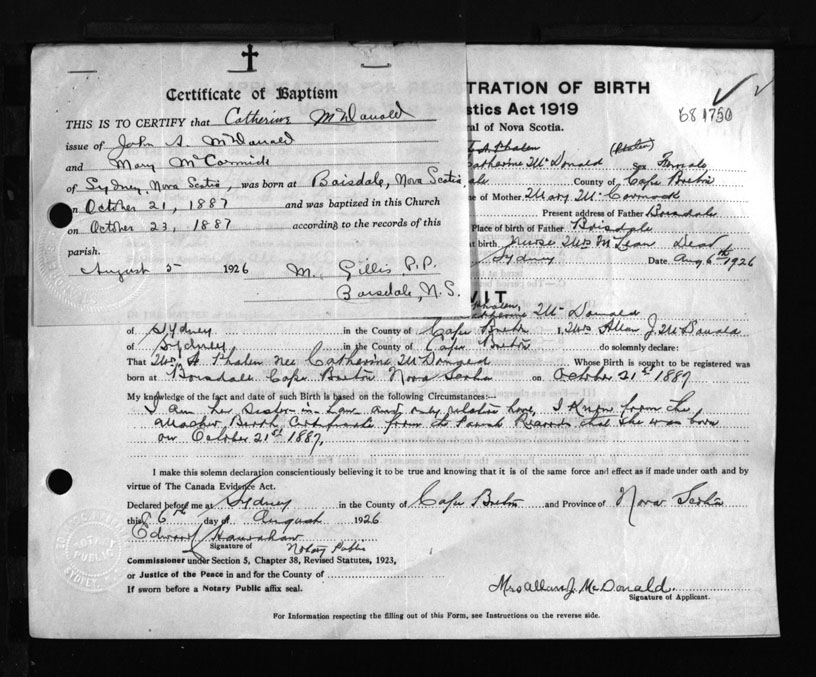 Certificate of Baptism
THIS IS TO CERTIFY that Catherine McDonald
issue of John A. McDonald
and Mary McCormick
of Sydney, Nova Scotia, was born at Boisdale, Nova Scotia
on October 21, 1887 and was baptized in this Church
on October 23, 1887 according to the records of this
parish.
August 5 1926 M. Gillis P.P.
Boisdale, N.S.
TRATION OF BIRTH
stics Act 1919
ral of Nova Scotia.
681750
Phalen
atherine McDonald Sex Female
ale County of Cape Breton
e of Mother Mary McCormack
Present address of Father Boisdale
Place of birth of Father Boisdale
t birth. Nurse Mrs McLean Dead
Sydney Date Aug 6th 1926
VIT
Phalen,
atherine McDonald
of Sydney in the County of Cape Breton I, Mrs Allan J. McDonald
of Sydney in the County of Cape Breton do solemnly declare:
That Mrs A Phalen nee Catherine McDonald Whose Birth is sought to be registered was
born at Boisdale Cape Breton Nova Scotia on October 21st 1887
My knowledge of the fact and date of such Birth is based on the following Circumstances:—
I am her Sister-in-Law and only relative here, I Know from the
attached Birth Certificate from the Parish Records that she was born
on October 21st 1887.
I make this solemn declaration conscientiously believing it to be true and knowing that it is of the same force and effect as if made under oath and by
virtue of The Canada Evidence Act.
Declared before me at Sydney in the County of Cape Breton and Province of Nova Scotia
this 6th day of August 1926
Signature of Notary Public
Commissioner under Section 5, Chapter 38, Revised Statutes, 1923,
or Justice of the Peace in and for the County of
If sworn before a Notary Public affix seal.
Mrs Allan J. McDonald
Signature of Applicant.
For Information respecting the filling out of this Form, see Instructions on the reverse side.